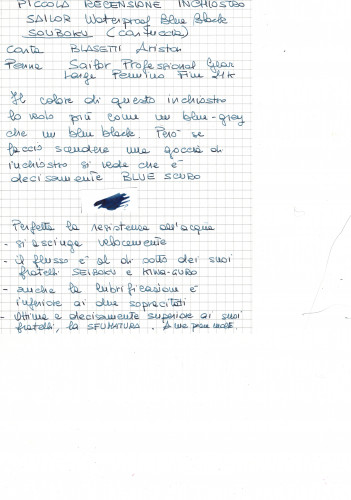 PICCOLA RECENSIONE INCHIOSTRO
SAILOR Waterproof Blue black
SOUBOKU (cartuccia)
Carta BLASETTI Ariston
Penna Sailor Professional Gear
Large Pennino Fine 21K
Il colore di questo inchiostro
lo vedo più come un blue-gray
che un blue black. Però se
faccio scendere una goccia di
inchiostro si vede che è
decisamente BLUE SCURO
Perfetta la resistenza all'acqua
- si asciuga velocemente
- il flusso è al di sotto dei suoi
fratelli SEIBOKU e KIWA-GURO
- anche la lubrificazione è
inferiore ai due sopracitati
- Ottima e decisamente superiore ai suoi
fratelli, la SFUMATURA. A me piace molto.